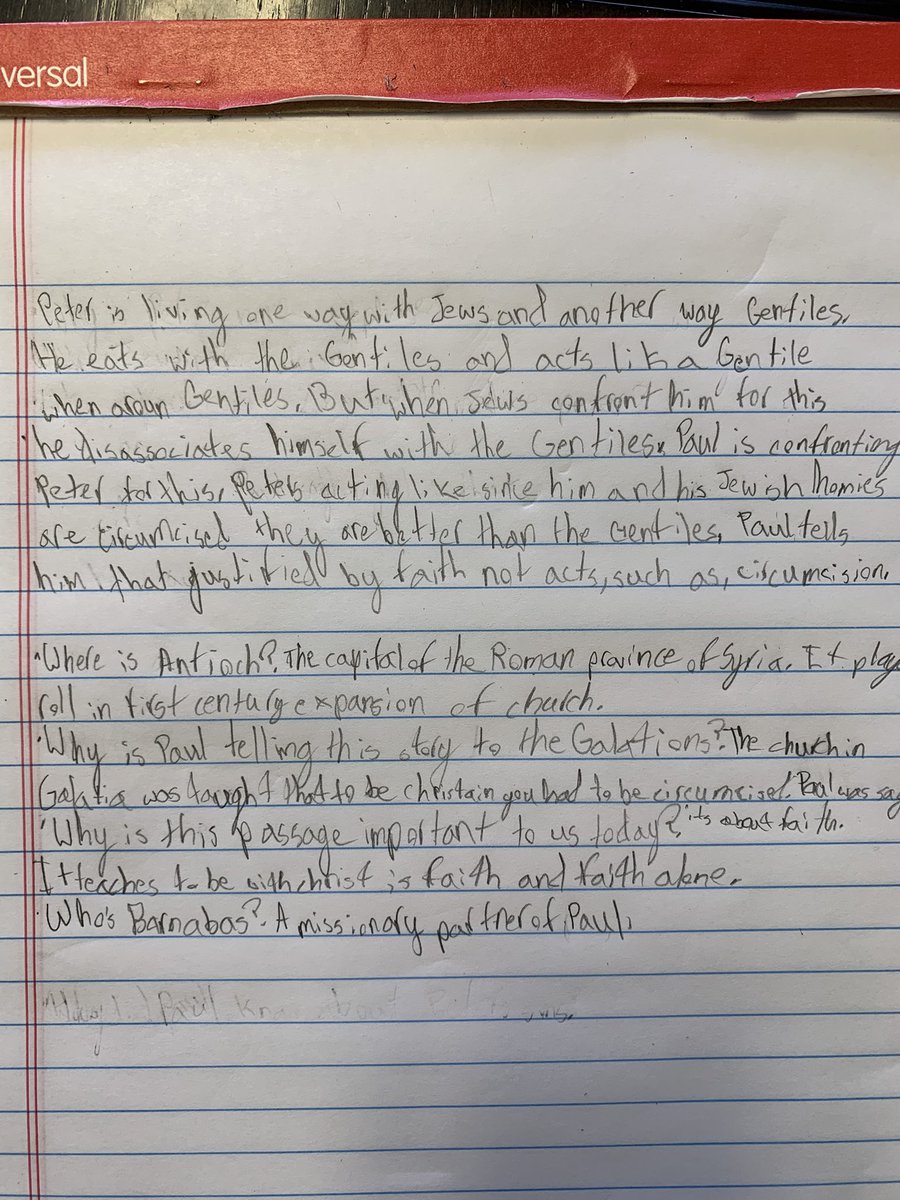 versal
Peter is living one way with Jews and another way Gentiles.
He eats with the Gentiles and acts lik a Gentile
when aroun Gentiles. But when Jews confront him for this
he disassociates himself with the Gentiles. Paul is confronting
Peter for this, Peters acting like since him and his Jewish homies
are circumcised they are better than the Gentiles, Paul tells
him that justified by faith not acts, such as, circumcision.
·Where is Antioch?. The capital of the Roman province of Syria. It play
roll in first century expansion of church.
·Why is Paul telling this story to the Galations?·The church in
Galatia was taught that to be christain you had to be circumcised. Paul was say
·Why is this passage important to us today? its about faith.
It teaches to be with christ is faith and faith alone.
·Who's Barnabas?·A missionary partner of Paul.
Paul